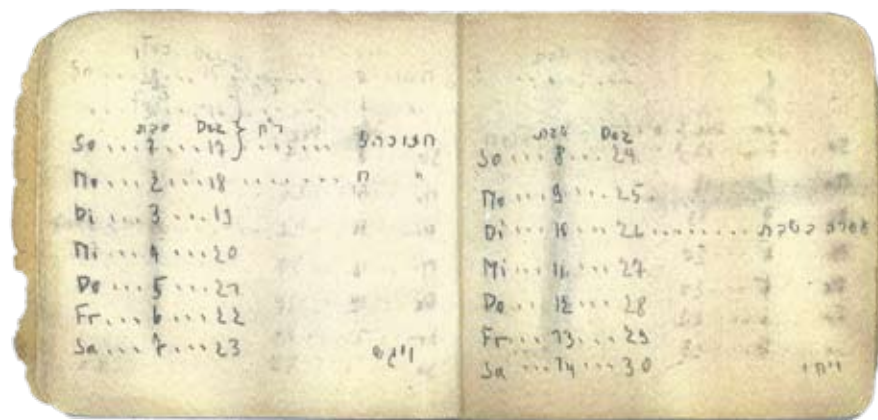 טבת Dez } ר"ח
So ... 1 ... 17 } ....... חנוכה ז
Mo ... 2 ... 18 .......... ח "
Di ... 3 ... 19
Mi ... 4 ... 20
Do ... 5 ... 21
Fr ... 6 ... 22
Sa ... 7 ... 23 ויגש
טבת Dez
So ... 8 ... 24
Mo ... 9 ... 25
Di ... 10 ... 26 .......... עשרה בטבת
Mi ... 11 ... 27
Do ... 12 ... 28
Fr ... 13 ... 29
Sa ... 14 ... 30 ויחי